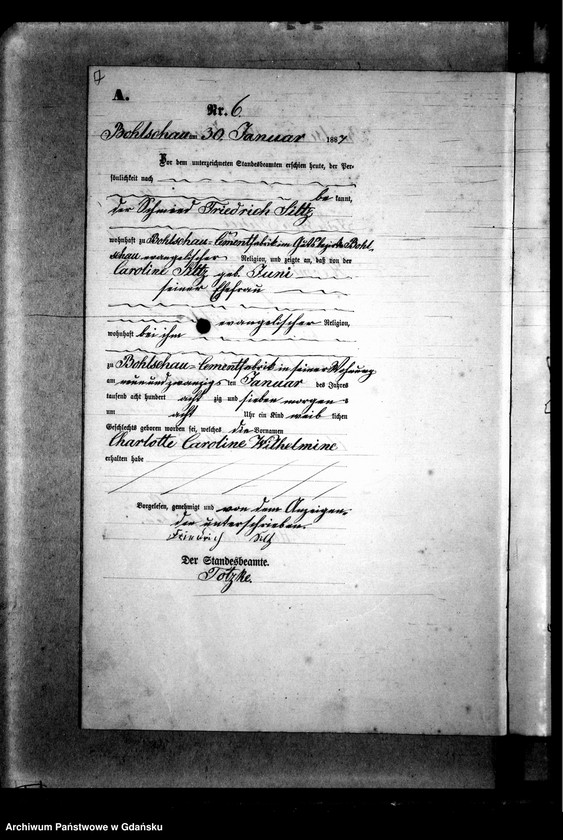 A.
Nr. 6
Bohlschau am 30. Januar 1887
Vor dem unterzeichneten Standesbeamten erschien heute, der Per-
sönlichkeit nach
be kannt,
der Schmied Friedrich Siltz
wohnhaft zu Bohlschau-Cementfabrik im Gutsbezirk Bohl-
schau evangelischer Religion, und zeigte an, daß von der
Caroline Siltz geb. Juni
seiner Ehefrau
evangelischer Religion,
wohnhaft bei ihm
zu Bohlschau-Cementfabrik in seiner Wohnung
am neunundzwanzigsten Januar des Jahres
tausend acht hundert acht zig und sieben morgens
um acht Uhr ein Kind weib lichen
Geschlechts geboren worden sei, welches die Vornamen
Charlotte Caroline Wilhelmine
erhalten habe
Vorgelesen, genehmigt und von dem Anzeigen-
den unterschrieben.
Friedrich
Der Standesbeamte.
Totzke.
Archiwum Państwowe w Gdańsku